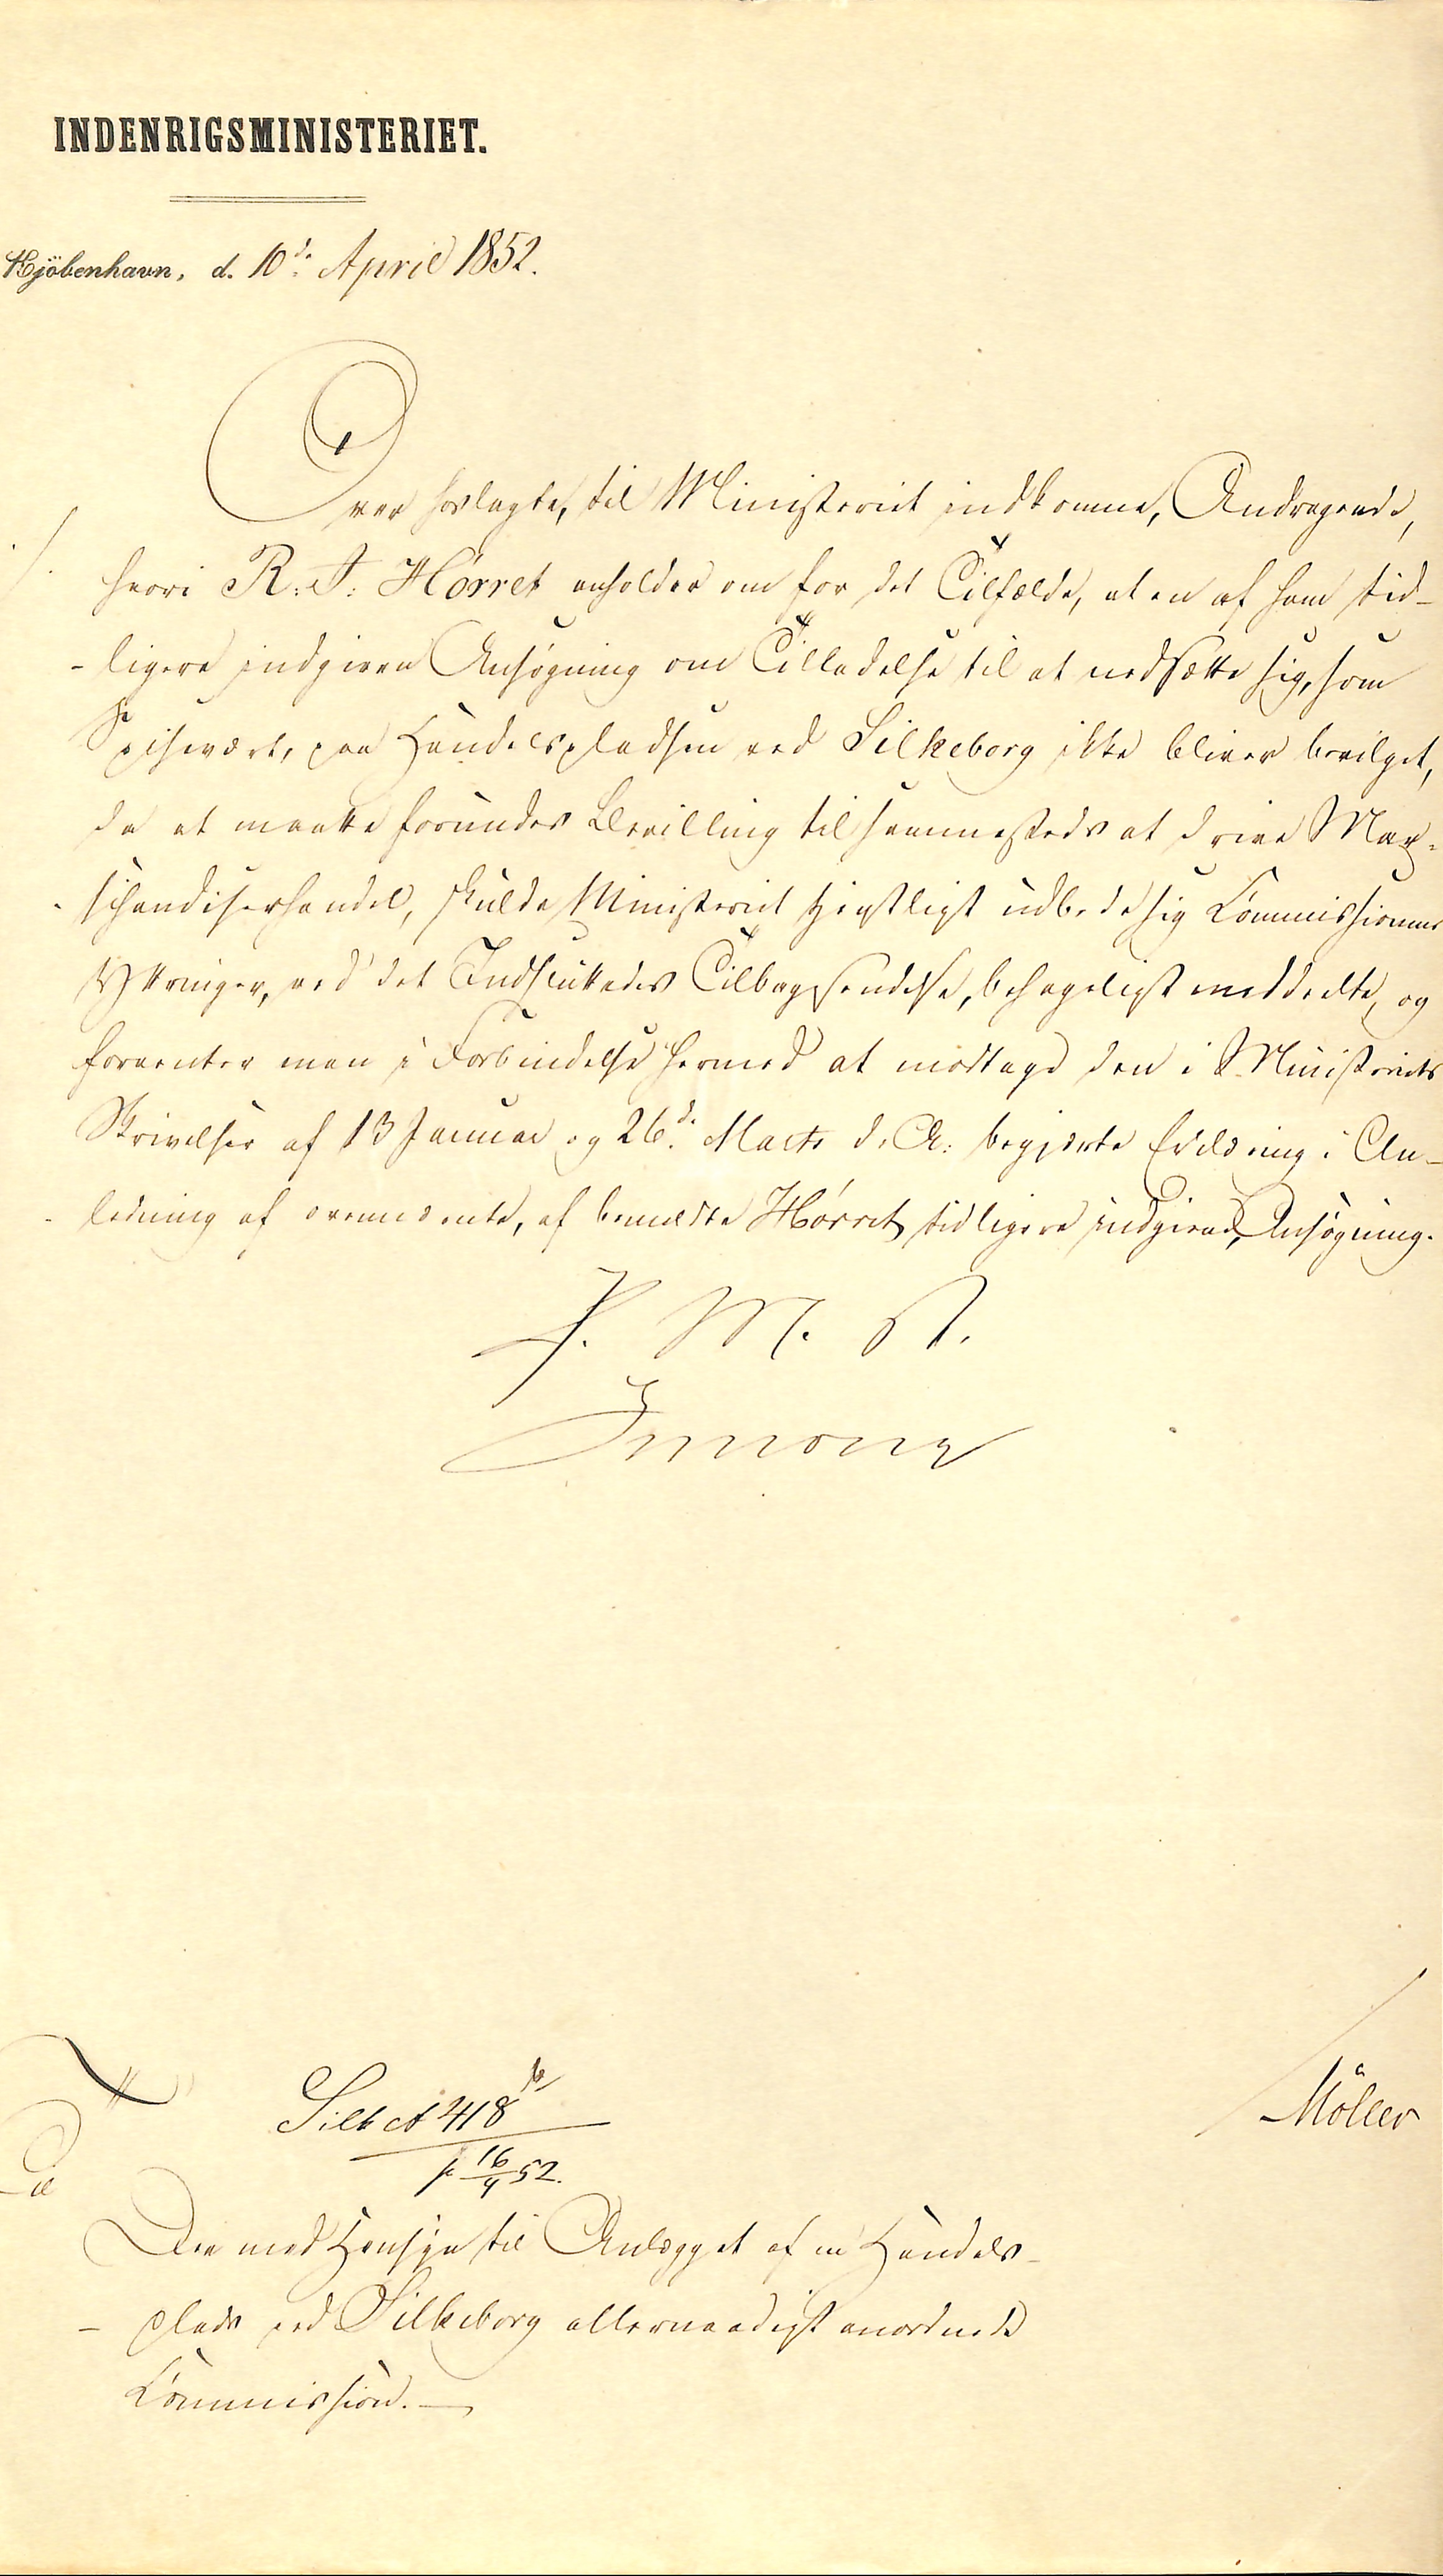 INDENRIGSMINISTERIET.
Kjöbenhavn, d. 10d: April 1852.
Over hoslagte, til Ministeriet indkomne, Andragende,
hvori R. J. Hørret anholder om for det Tilfælde, at en af ham tid-
-ligere indgiven Ansøgning om Tilladelse til at nedsætte sig, som
Spisevært, paa Handelspladsen ved Silkeborg ikke bliver bevilget,
da at maatte forundes Bevilling til sammesteds at drive Mar-
-schandiserhandel, skulde Ministeriet tjenstligt udbede sig Commissionens
Yttringer, ved det Indsluttedes Tilbagesendelse, behageligst meddeelte, og
forventer man i Forbindelse hermed at modtage den i Ministeriets
Skrivelser af 13 Januar og 26d: Marts d. A. begjærte Erklæring i An-
-ledning af ovennævnte, af bemeldte Hørret tidligere indgivne, Ansøgning.
P. M. V.
Simony
Møller
Silk A 418 b
p 16/4 52.
Til
Den med Hensyn til Anlægget af en Handels-
-plads ved Silkeborg allernaadigst anordnede
Commission.